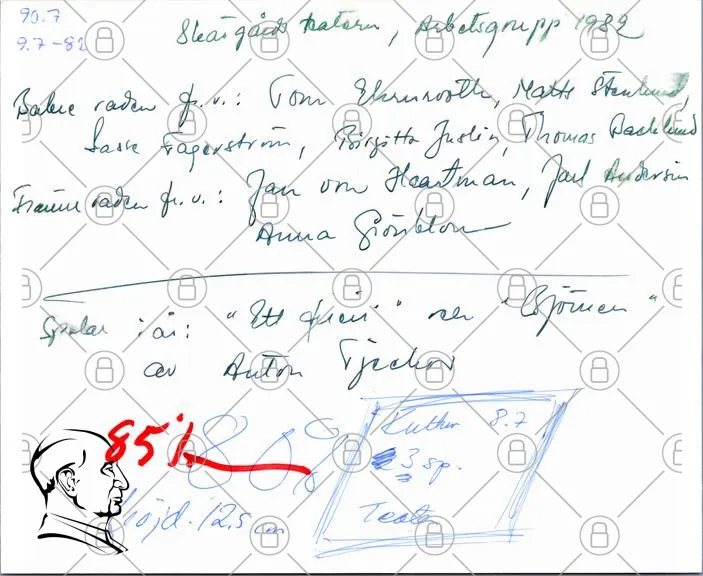 90.7
9.7-82
Skärgårdsteatern, Arbetsgrupp 1982
Bakre raden fr.v.: Tom Ehrnrooth, Matts Stenlund,
Lasse Fagerström, Birgitta Justin, Thomas Backlund
Främre raden fr.v.: Jan von Haartman, Jarl Andersin
Anna
Spelar i år: "Ett frieri" och "Björnen"
av Anton Tjechov
85%
80%
höjd. 12,5 cm
Kultur 8.7
3 sp.
Teater